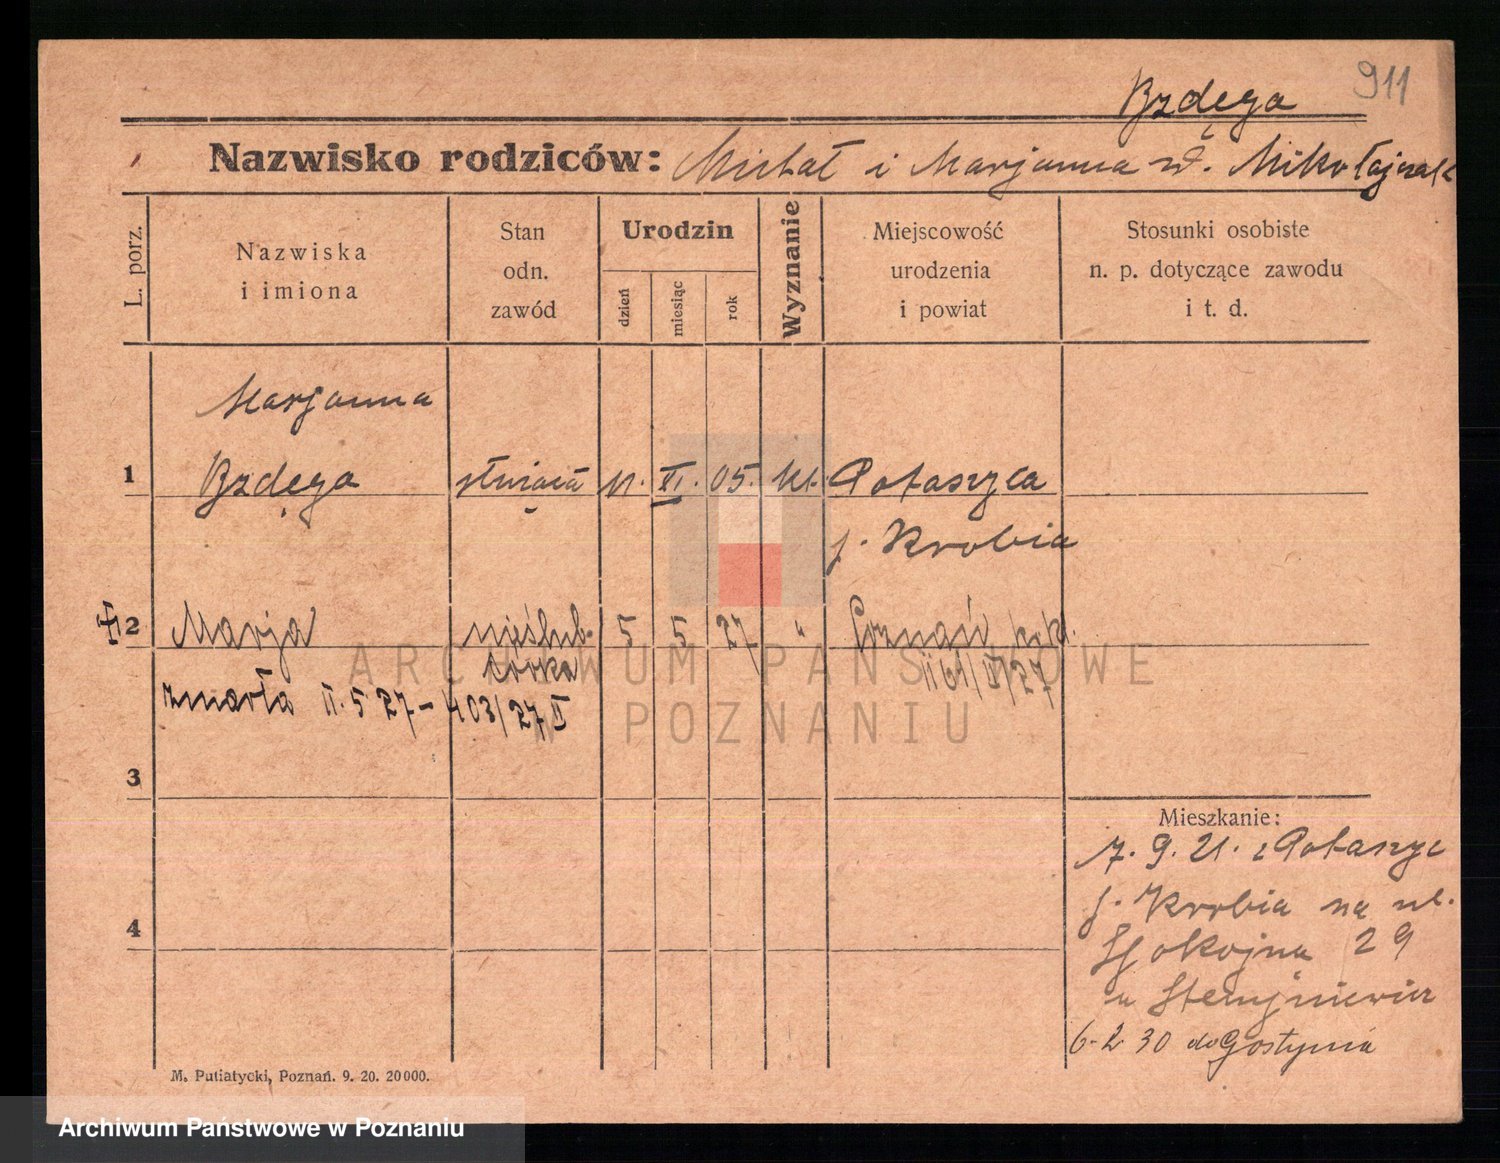 911
Bzdęga
Nazwisko rodziców: Michał i Marjanna zd. Mikołajczak
L. porz.
Nazwiska
i imiona
Stan
odn.
zawód
Urodzin
dzień
miesiąc
rok
Wyznanie
Miejscowość
urodzenia
i powiat
Stosunki osobiste
n. p. dotyczące zawodu
i t. d.
Marjanna
1 Bzdęga służąca 11. XI. 05. kt. Potaszyca
p. Krobia
2 Marja nieślub. 5 5 27 " Poznań
córka 1161/II/27
zmarła 11. 5 27 – 403/27 II
3
Mieszkanie:
7. 9. 21. z Potaszyc
p. Krobia na ul.
4
Spokojna 29
u
6-2 30 do Gostynia
M. Putiatycki, Poznań. 9. 20. 20000.
ARCHIWUM PAŃSTWOWE
W POZNANIU
Archiwum Państwowe w Poznaniu